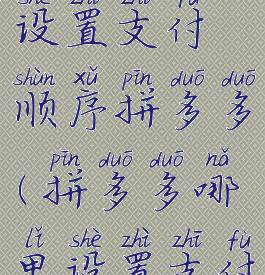 shè zhì zhī fù
设置支付
shùn xǔ pīn duō duō
顺序拼多多
pīn duō duō nǎ
(拼多多哪
lǐ shè zhì zhī fù
里设置支付